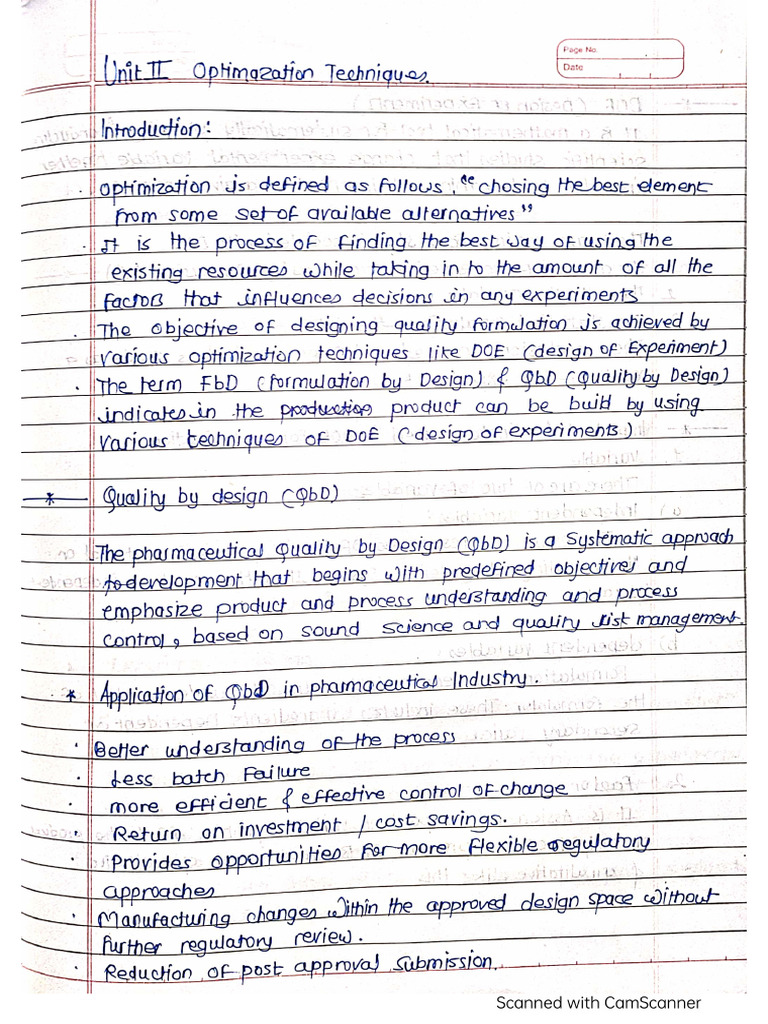 Page No.
Date
Unit II Optimazation Techniques.
Introduction:
· optimization is defined as follows. "chosing the best element
from some set of available alternatives"
· It is the process of finding the best way of using the
existing resources while taking in to the amount of all the
factors that influences decisions in any experiments
· The objective of designing quality formulation is achieved by
various optimization techniques like DOE (design of Experiment)
· The term FbD (formulation by Design) & QbD (Quality by Design)
indicates in the production product can be build by using
various techniques of DOE (design of experiments)
* Quality by design (QbD)
The pharmaceutical Quality by Design (QbD) is a Systematic approach
to development that begins with predefined objectives and
emphasize product and process understanding and process
control, based on sound science and quality risk management.
* Application of QbD in pharmaceutical Industry.
· Better understanding of the process
· Less batch failure
· more efficient & effective control of change
· Return on investment / cost savings.
· Provides opportunities for more flexible regulatory
approaches
· Manufacturing changes within the approved design space without
further regulatory review.
· Reduction of post approval submission.
Scanned with CamScanner